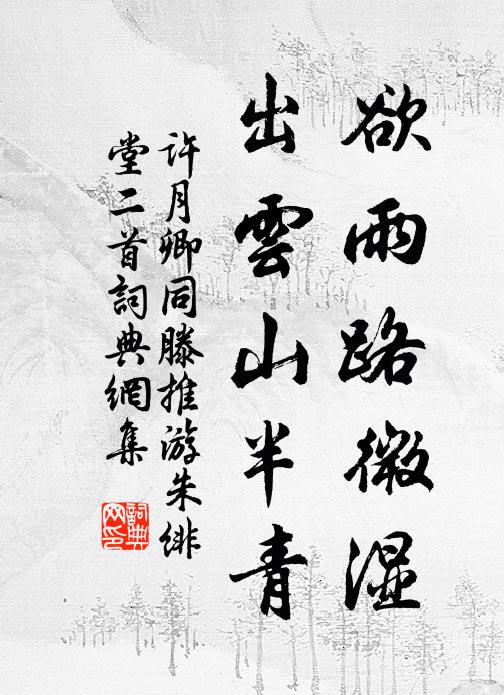 欲雨路微湿
出雲山半青
許月卿同滕推游朱緋
堂二首詞典網集
詞典
网印